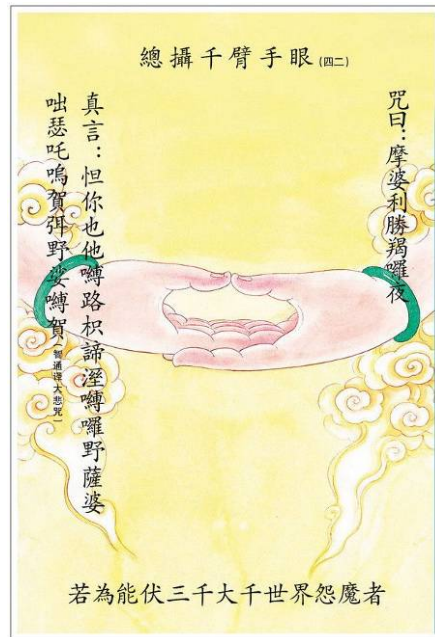 總攝千臂手眼(四二)
咒曰：摩婆利勝羯囉夜
真言：怛你也他嚩路枳諦溼嚩囉野薩婆
咄瑟吒嗚賀弭野娑嚩賀(智通譯大悲咒)
若為能伏三千大千世界怨魔者